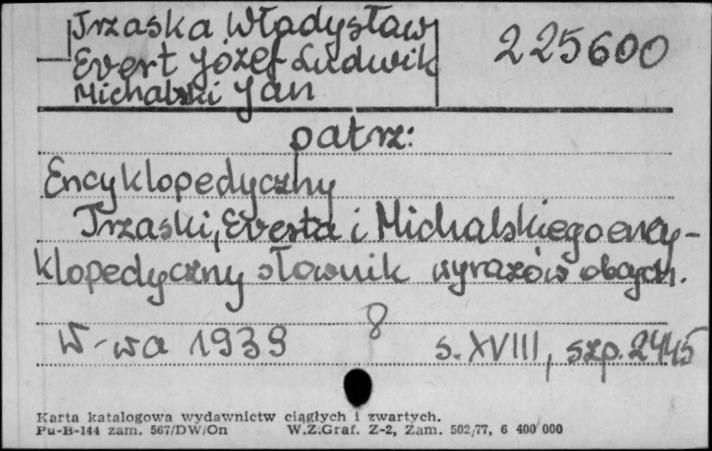 Trzaska Władysław
Evert Józef Ludwik
Michalski Jan
225600
patrz:
Encyklopedyczny
Trzaski, Everta i Michalskiego ency-
klopedyczny słownik wyrazów obcych.
W-wa 1939 8 s. XVIII, szp. 2445
Karta katalogowa wydawnictw ciągłych i zwartych.
Pu-B-144 zam. 567/DW/On W.Z.Graf. Z-2, Zam. 502/77, 6 400 000